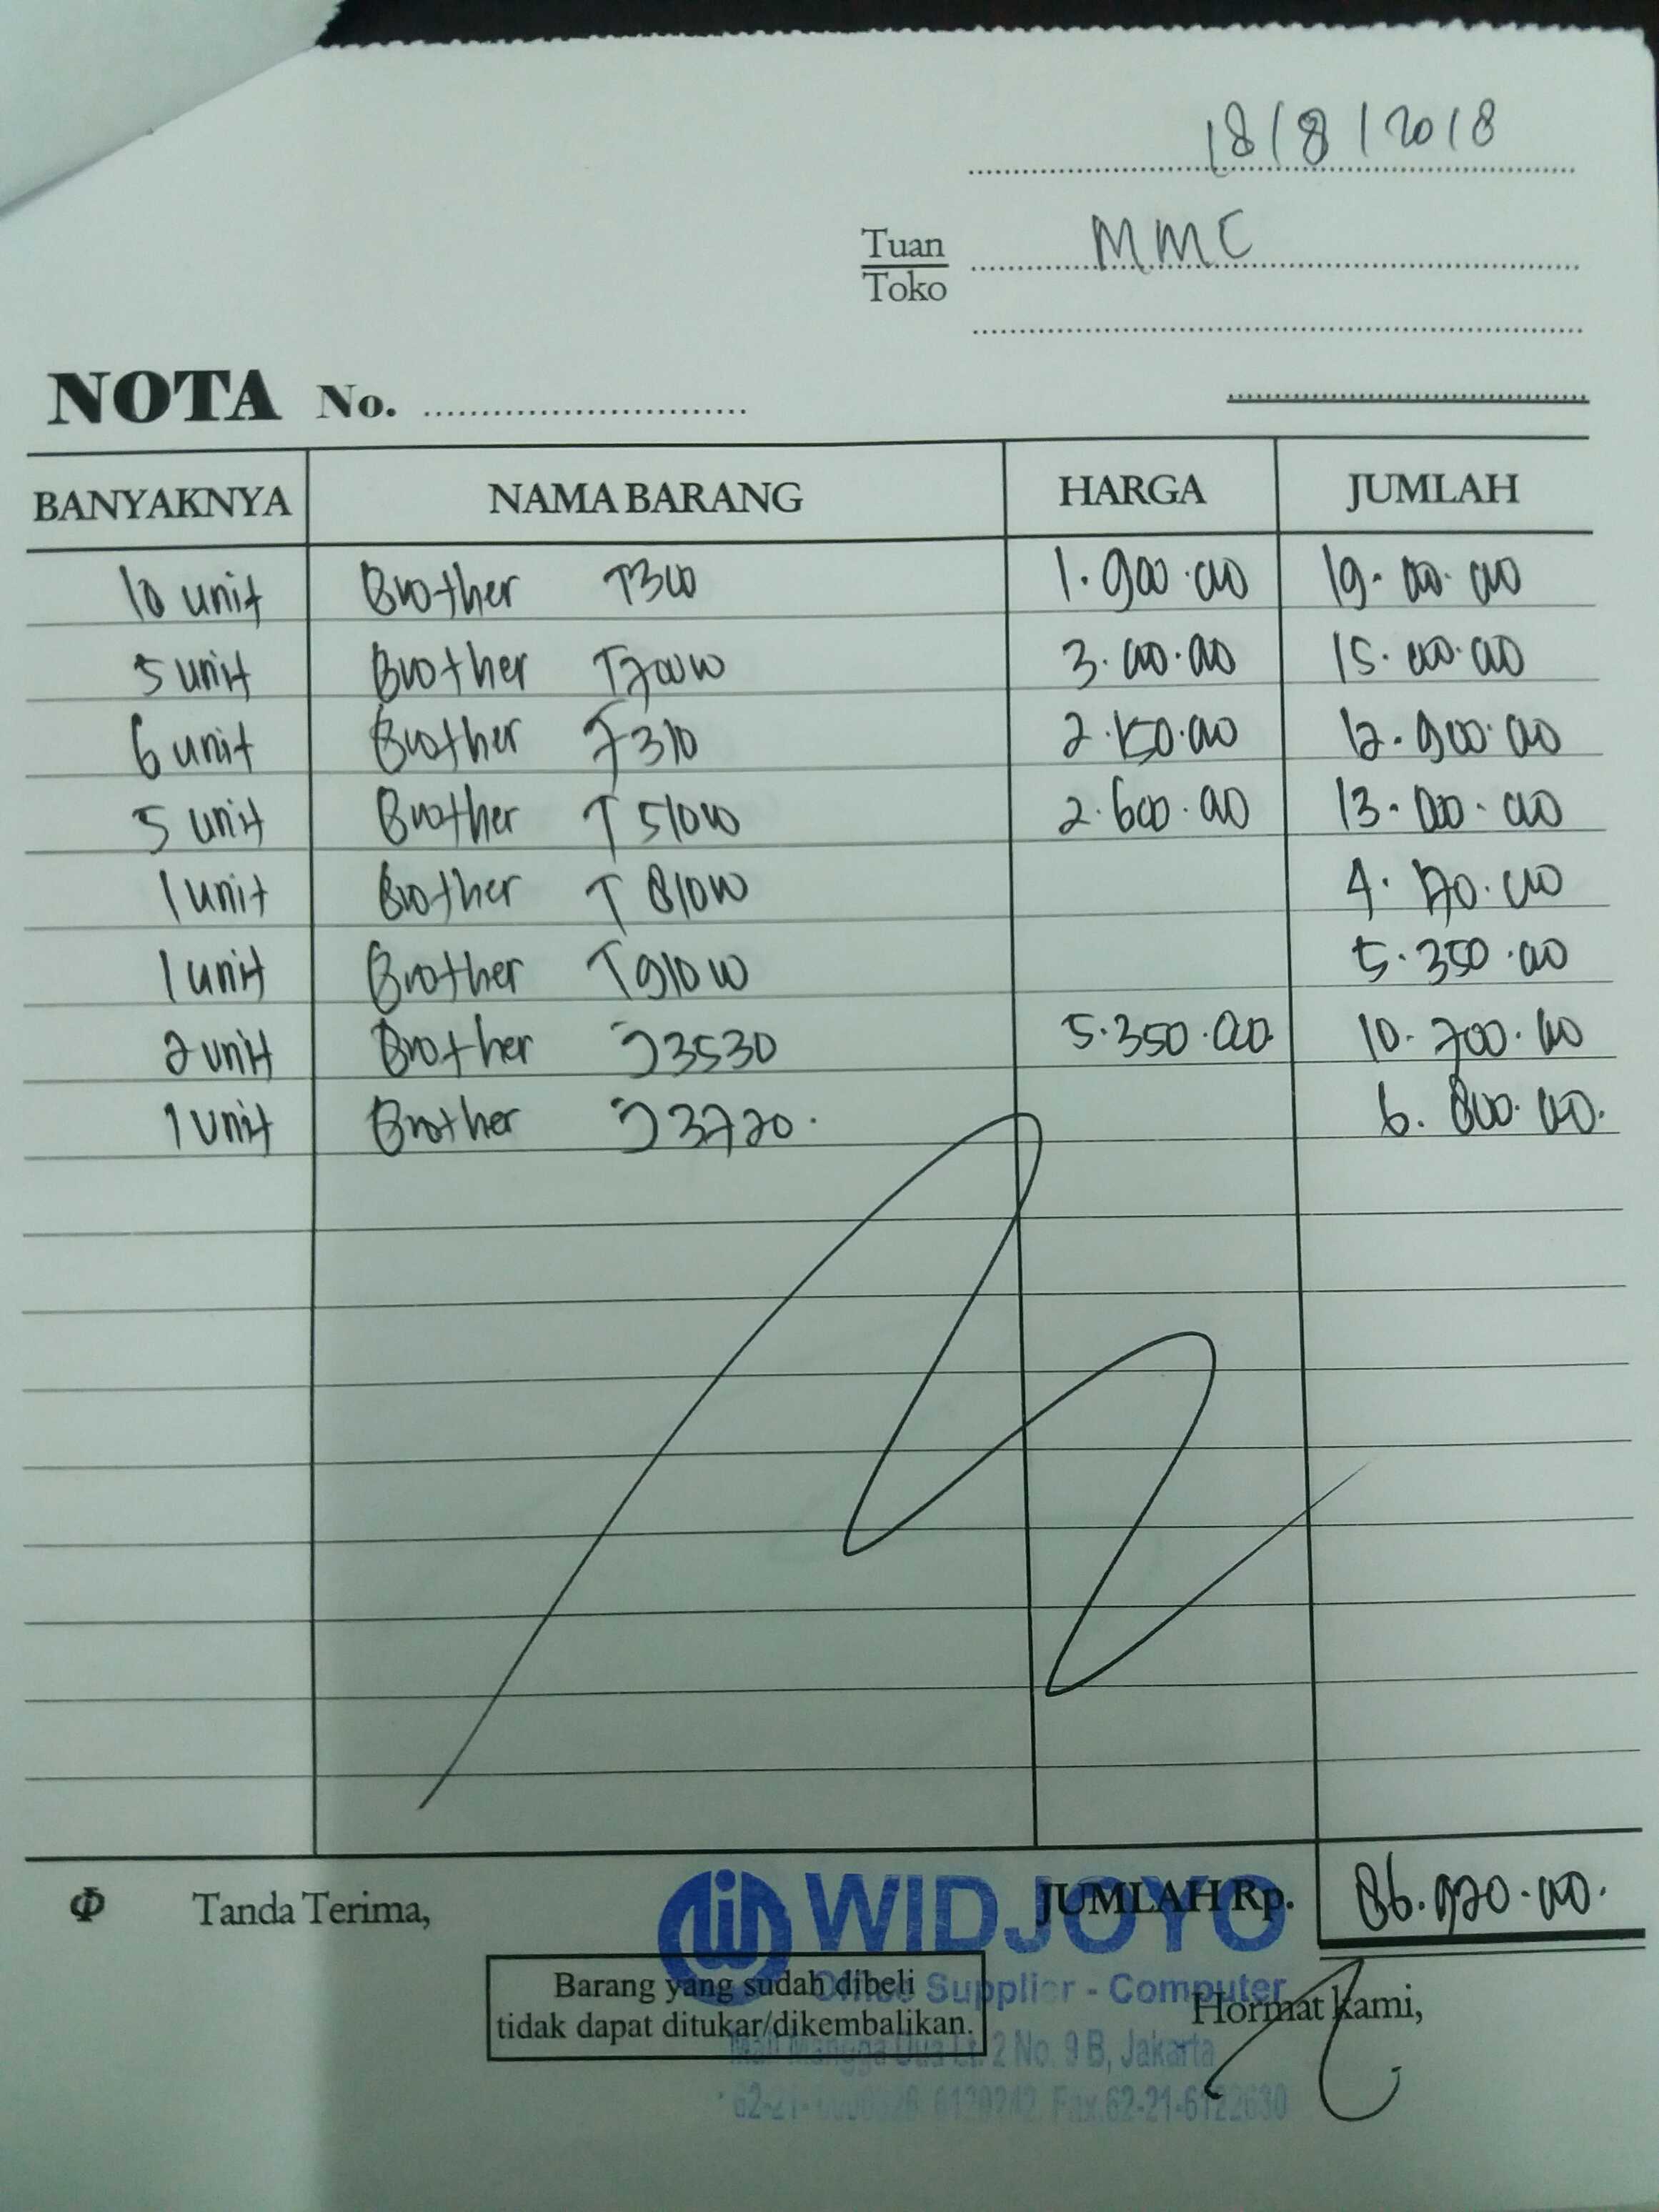 18/8/2018
Tuan
Toko
MMC
NOTA No.
BANYAKNYA NAMA BARANG HARGA JUMLAH
10 unit Brother T300 1.900.000 19.000.000
5 unit Brother T700W 3.000.000 15.000.000
6 unit Brother T310 2.150.000 12.900.000
5 unit Brother T510W 2.600.000 13.000.000
1 unit Brother T810W 4.170.000
1 unit Brother T910W 5.350.000
2 unit Brother J3530 5.350.000 10.700.000
1 unit Brother J3720 6.800.000
Tanda Terima, JUMLAH Rp. 86.920.000
WIDJOYO
Office Supplier - Computer
Barang yang sudah dibeli
tidak dapat ditukar/dikembalikan.
Hormat kami,
Mall Mangga Dua Lt. 2 No. 9 B, Jakarta
Fax.62-21-6122630